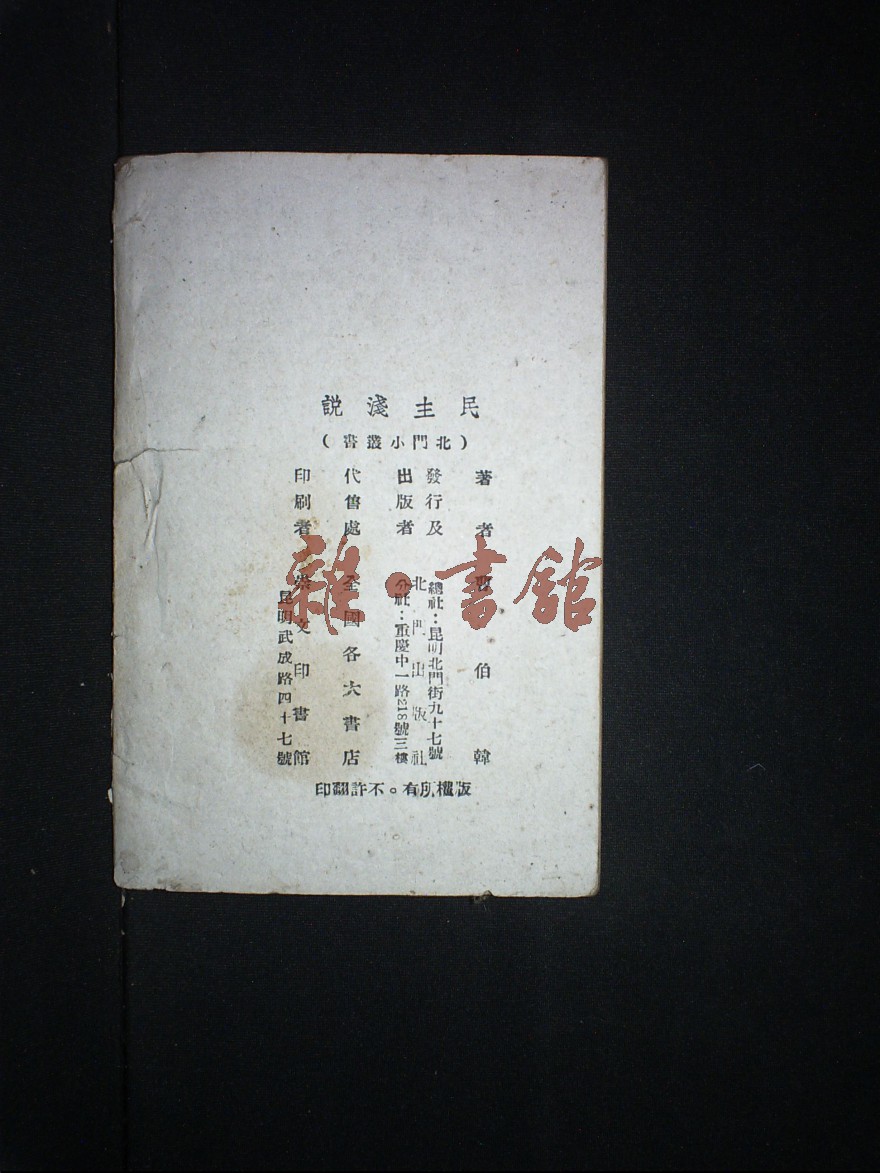 民主淺說
（北門小叢書）
著者 曹伯韓
發行及出版者 北門出版社
總社：昆明北門街九十七號
分社：重慶中一路218號三樓
代售處 全國各大書店
印刷者 崇文印書館
昆明武成路四十七號
版權所有。不許翻印
雜。書館